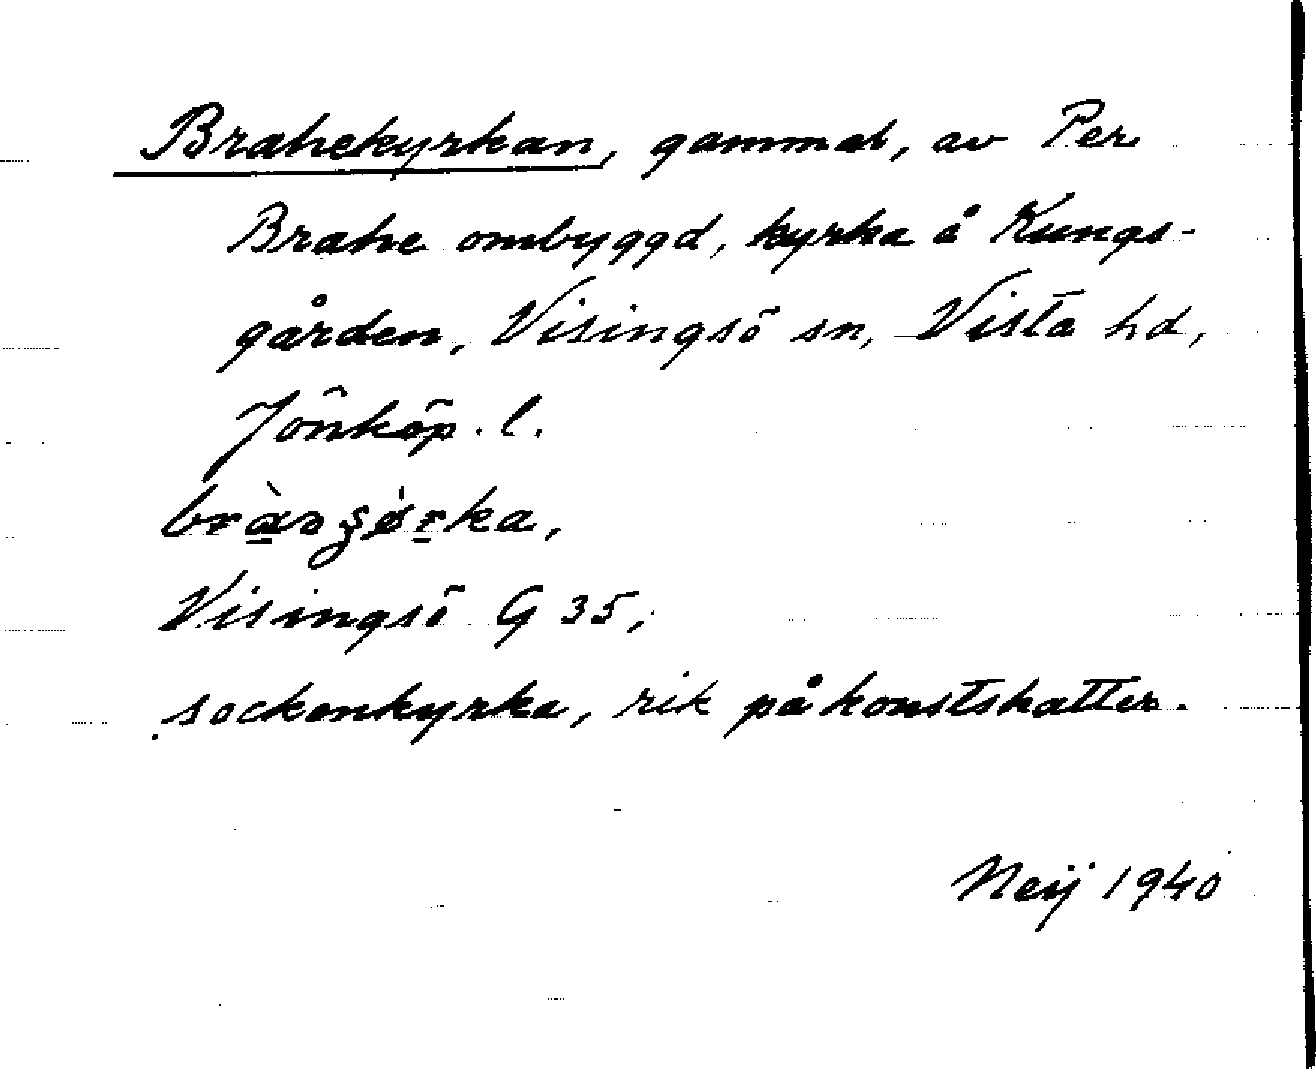 Brahekyrkan, gammal, av Per
Brahe ombyggd, kyrka å Kungs-
gården, Visingsö sn, Vista hd,
Jönköp. l.
Visingsö G 35,
sockenkyrka, rik på konstskatter.
Neij 1940